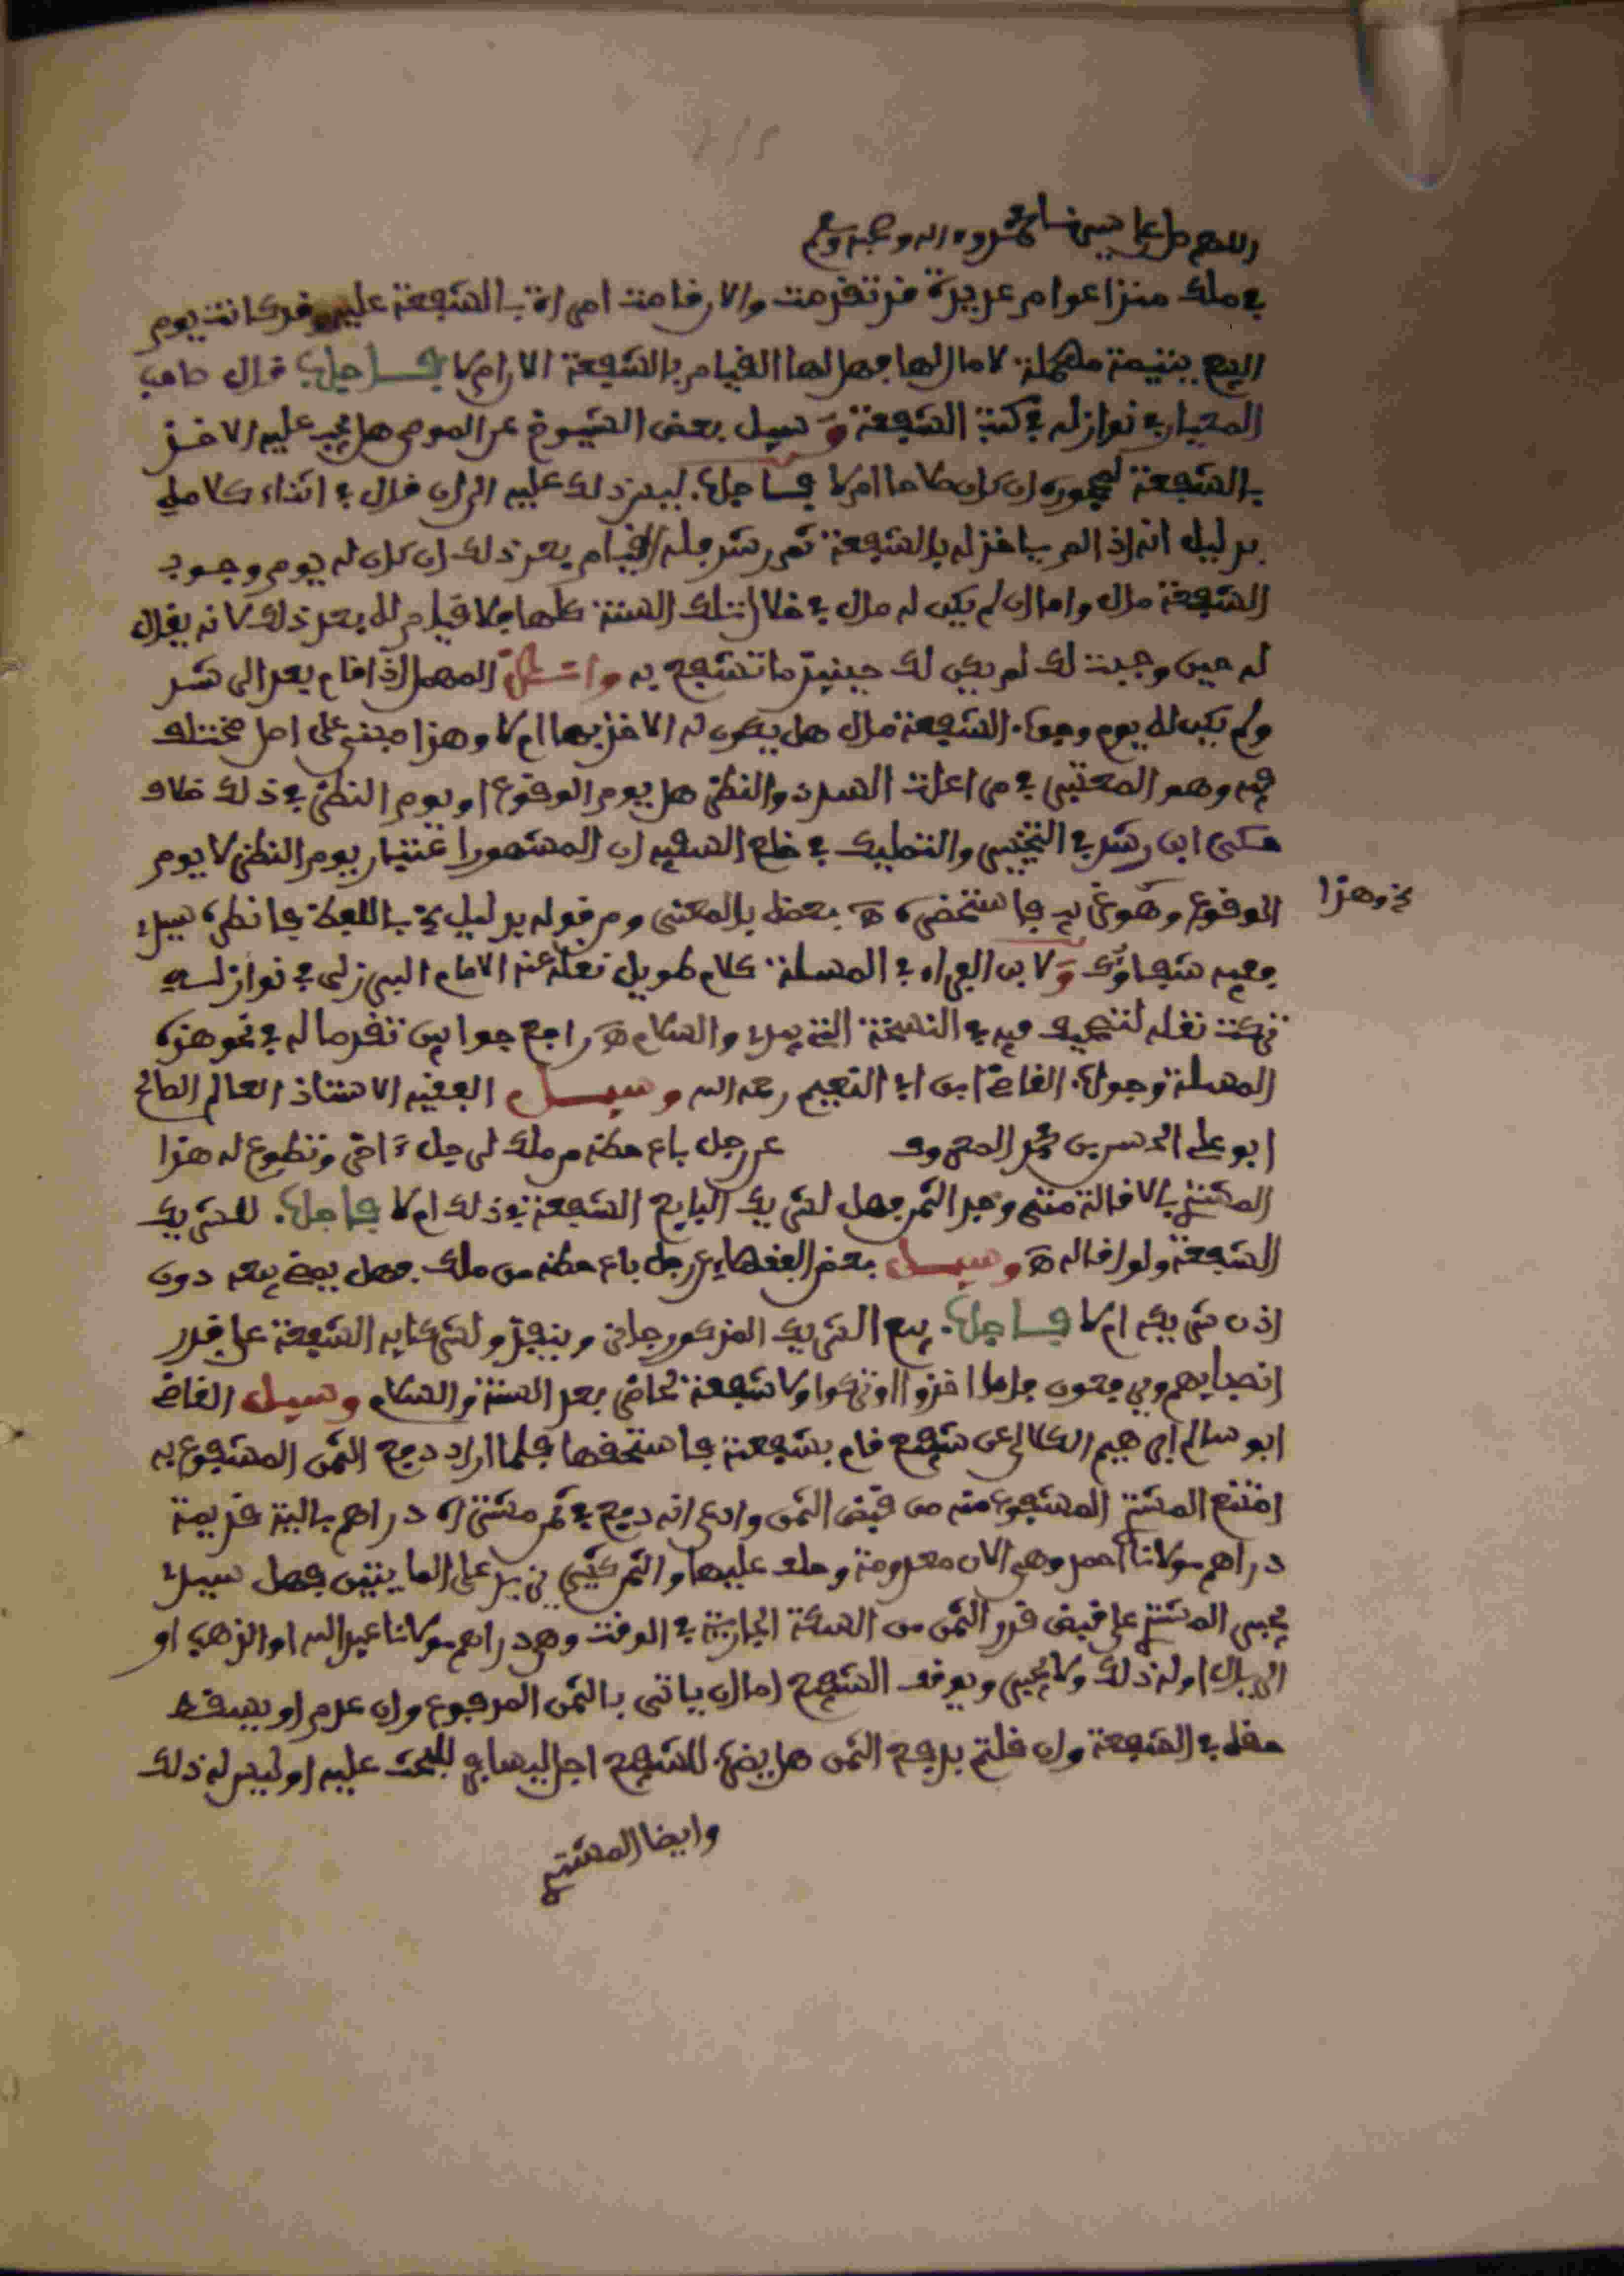 اللهم صل على سيدنا محمد وءاله وصحبه وسلم
في ملك منذ اعوام عديدة قد تقدمت والان قامت امراة بالشفعة عليه وقد كانت يوم
البيع يتيمة مهملة لا مال لها فهل لها القيام بالشفعة الان ام لا فاجاب قال صاحب
المعيار في نوازله في كتب الشفعة وسيل بعض الشيوخ عن الوصي هل يجب عليه الاخذ
بالشفعة لمحجوره ان كان صلاحا ام لا فاجاب ليس ذلك عليه الى ان قال في اثناء كلامه
بدليل انه اذا لم ياخذ له بالشفعة ثم رشد فله القيام بعد ذلك ان كان له يوم وجوب
الشفعة مال واما ان لم يكن له مال في خلال تلك السنة كلها فلا قيام له بعد ذلك لانه يقال
له حين وجبت لك لم يكن لك حينيذ ما تشفع به المهمل اذا قام بعد ان رشد
ولم يكن له يوم وجوب الشفعة مال هل يكون له الاخذ بها ام لا وهذا مبني على اصل مختلف
فيه وهو المعتبر في مراعات السداد والنظر هل يوم الوقوع او يوم النظر في ذلك خلاف
حكى ابن رشد في التخيير والتمليك في خلع السفيه ان المشهور اعتبار يوم النظر لا يوم
الوقوع وهو غريب فاستحضره ه بعضه بالمعنى ومر قوله بدليل الخ باللفظ فانظره سيدي
وهذا
ففيه شفاؤك ولابن العراه في المسلة كلام طويل نقله عنه الامام البرزلي في نوازله
تركت نقله لتصحيف فيه في النسخة التي بيدي والسلام ه راجع جوابين تقدما له في نحو هذه
المسلة وجواب القاضي ابن ابي النعيم رحمه الله وسيل الفقيه الاستاذ العالم الصالح
ابو علي الحسن بن محمد عن رجل باع حظه من ملك لرجل ءاخر وتطوع له هذا
المشتري بالاقالة متى وجد الثمن فهل لشريك البايع الشفعة في ذلك ام لا فاجاب للشريك
الشفعة ولو اقاله ه وسيل بعض الفقهاء عن رجل باع حظه من ملك فهل يمضي بيعه دون
اذن شريكه ام لا فاجاب بيع الشريك المذكور جائز وينفذ ولشركايه الشفعة على قدر
انصبايهم ويرفعون فاما اخذوا او تركوا ولا شفعة لحاضر بعد السنة والسلام وسيل القاضي
ابو سالم ابراهيم الكلالي عن شفيع قام بشفعة فاستحقها فلما اراد دفع الثمن المشفوع به
امتنع المشتري المشفوع منه من قبض الثمن وادعى انه دفع في ثمن مشتراه دراهم بالية قديمة
دراهم مولانا احمد وهي الان معدومة وحلف عليها والثمن كثير يزيد على المايتين فهل سيدي
يجبر المشتري على قبض قدر الثمن من السكة الجارية في الوقت وهي دراهم مولانا عبد الله او الذهب او
الريال او له ذلك ولا يجبر ويوقف الشفيع اما ان ياتي بالثمن المدفوع وان عدم او يسقط
حقه في الشفعة وان قلتم بدفع الثمن هل يضرب للشفيع اجل ليسافر للبحث عليه او ليس له ذلك
وايضا المشتري